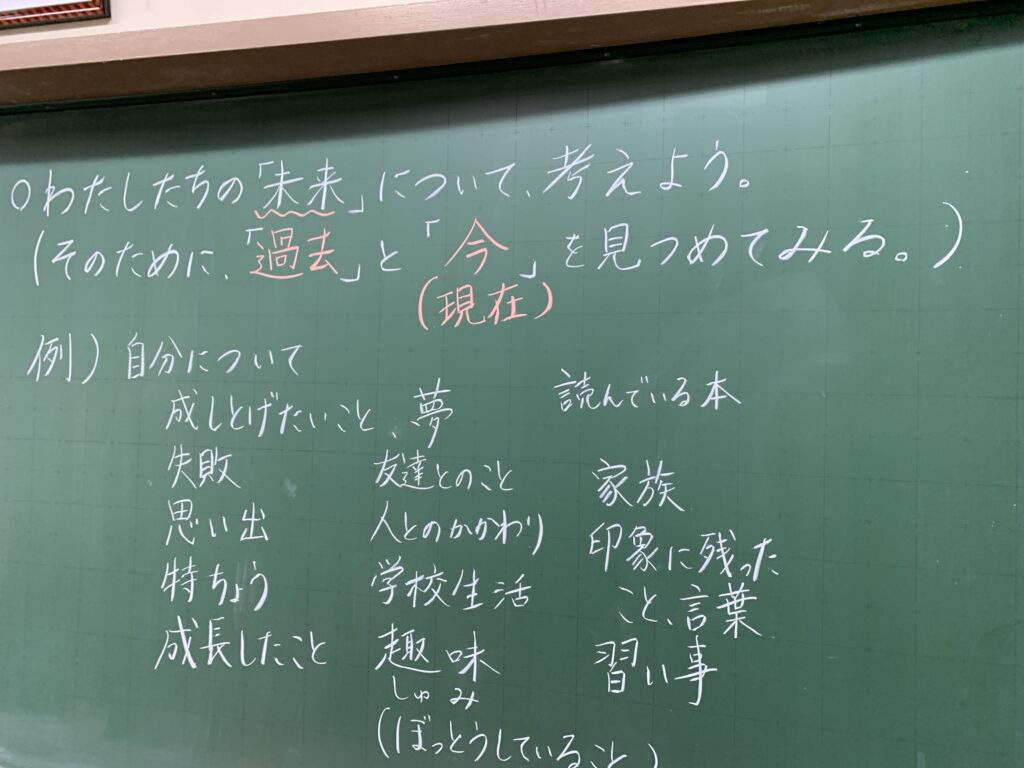 ○わたしたちの「未来」について、考えよう。
(そのために、「過去」と「今」を見つめてみる。)
(現在)
例)自分について
成しとげたいこと、夢
失敗
思い出
特ちょう
成長したこと
友達とのこと
人とのかかわり
学校生活
趣味
しゅみ
(ぼっとうしていること)
読んでいる本
家族
印象に残った
こと、言葉
習い事